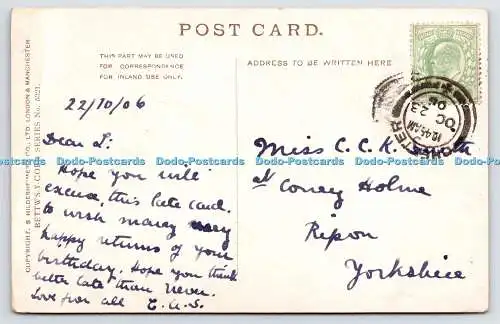 POST CARD.
THIS PART MAY BE USED
FOR CORRESPONDENCE
FOR INLAND USE ONLY.
ADDRESS TO BE WRITTEN HERE
COPYRIGHT, S. HILDESHEIMER & CO., LTD. LONDON & MANCHESTER
BETTWS-Y-COED SERIES No. 5221.
22/10/06
Dear L:
Hope you will
excuse this late card.
to wish many
happy returns of your
birthday. Hope you think
better late than never.
Love from all E.A.S.
Miss C. C. K.
at Coney Holme
Ripon
Yorkshire
12.45AM
OC 23
06
Dodo-Postcards Dodo-Postcards Dodo-Postcards Dodo-Postcards Dodo-Postcards Dodo-Postcards